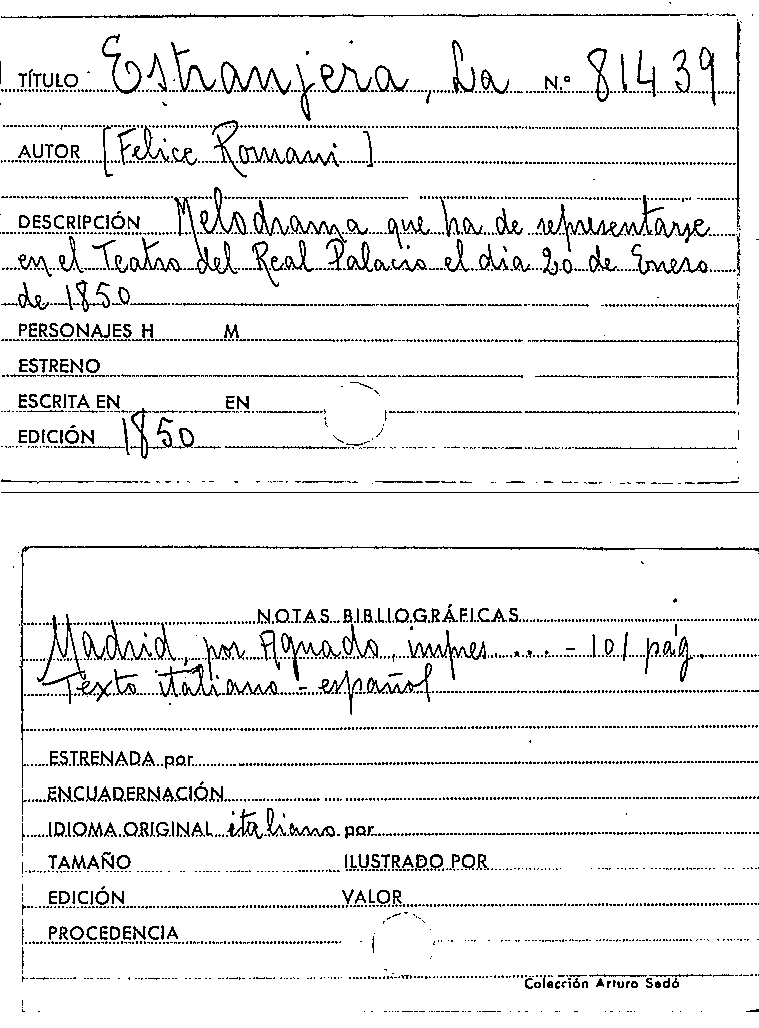 TÍTULO Estranjera, La N.º 81439
AUTOR [Felice Romani]
DESCRIPCIÓN Melodrama que ha de representarse
en el Teatro del Real Palacio el dia 20 de Enero
de 1850
PERSONAJES H M
ESTRENO
ESCRITA EN EN
EDICIÓN 1850
NOTAS BIBLIOGRÁFICAS
Madrid, por Aguado, impres... - 101 pág.
Texto italiano - español
ESTRENADA por
ENCUADERNACIÓN
IDIOMA ORIGINAL italiano por
TAMAÑO ILUSTRADO POR
EDICIÓN VALOR
PROCEDENCIA
Colección Arturo Sedó